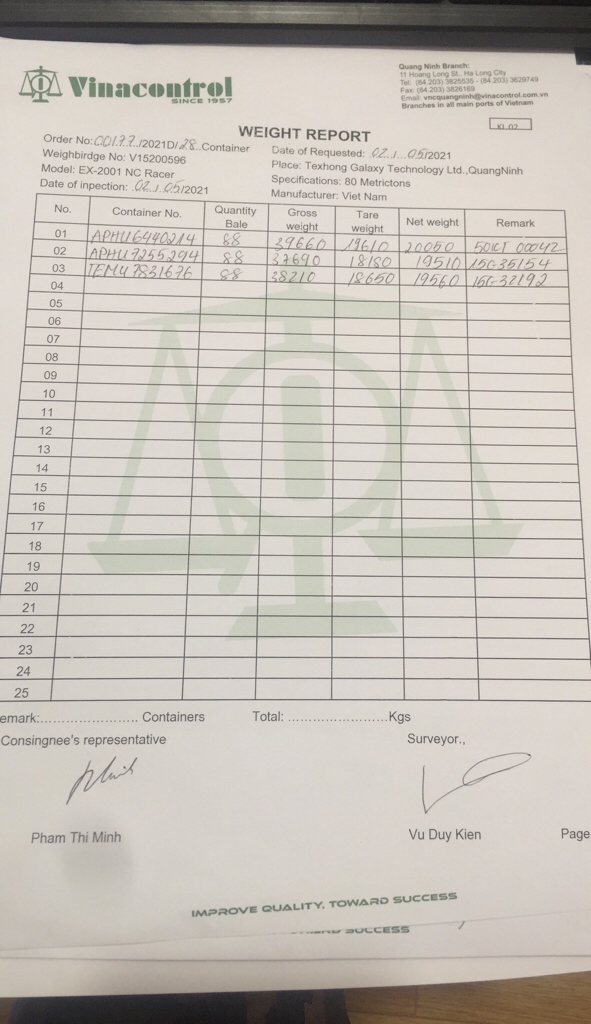 Vinacontrol
SINCE 1957
Quang Ninh Branch:
11 Hoang Long St., Ha Long City
Tel: (84.203) 3825835 - (84.203) 3829749
Fax: (84.203) 3826169
Email: vncquangninh@vinacontrol.com.vn
Branches in all main ports of Vietnam
KL 02
WEIGHT REPORT
Order No:00177/2021D/28..Container
Date of Requested: 02 / 05/2021
Weighbirdge No: V15200596
Place: Texhong Galaxy Technology Ltd.,QuangNinh
Model: EX-2001 NC Racer
Specifications: 80 Metrictons
Date of inpection: 02 / 05/2021
Manufacturer: Viet Nam
No. Container No. Quantity Bale Gross weight Tare weight Net weight Remark
01 APHU6440214 88 39660 19610 20050 50LCT 00042
02 APHU7255294 88 37690 18180 19510 15G-35154
03 TEMU7831676 88 38210 18650 19560 15G-32192
04
05
06
07
08
09
10
11
12
13
14
15
16
17
18
19
20
21
22
23
24
25
emark:........................ Containers Total: ........................Kgs
Consingnee's representative Surveyor.,
Pham Thi Minh Vu Duy Kien Page
IMPROVE QUALITY, TOWARD SUCCESS
SUCCESS